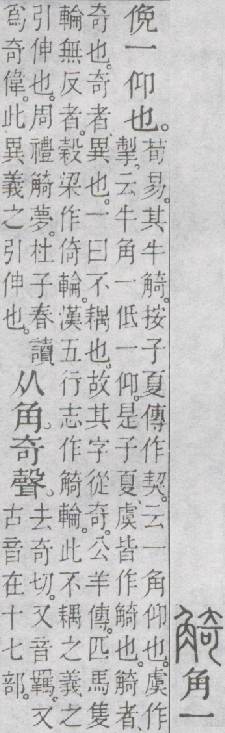 觭角一
俛一仰也。
荀易。其牛觭。按子夏傳作契。云一角仰也。虞作
掣。云牛角一低一仰。是子夏虞皆作觭也。觭者、
奇也。奇者、異也。一曰不耦也。故其字從奇。公羊傳。匹馬隻
輪無反者。穀梁作倚輪。漢五行志作觭輪。此不耦之義之
引伸也。周禮觭夢。杜子春讀
爲奇偉。此異義之引伸也。
从角。奇聲。
去奇切。又音羈。又
古音在十七部。